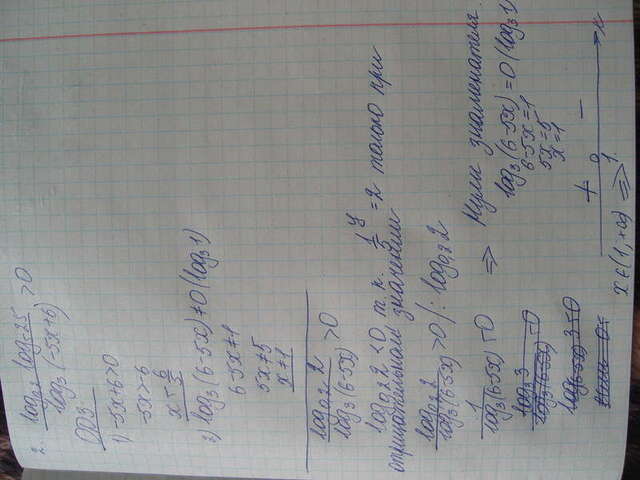 2. log₀,₂ log₅25 / log₃(-5x+6) > 0
ОДЗ
1) -5x+6>0
-5x>-6
x < 6/5
2) log₃(6-5x)≠0 (log₃1)
6-5x≠1
5x≠5
x≠1
log₀,₂2 / log₃(6-5x) > 0
log₀,₂2 <0 т.к. 1/5 ^y = 2 только при
отрицательном значении
log₀,₂2 / log₃(6-5x) >0 /: log₀,₂2
1 / log₃(6-5x) <0 ⇒ Нули знаменателя.
log₃(6-5x)=0 (log₃1)
6-5x=1
5x=5
x=1
+ 0 - x
1
x∈(1,+∞) ⇒